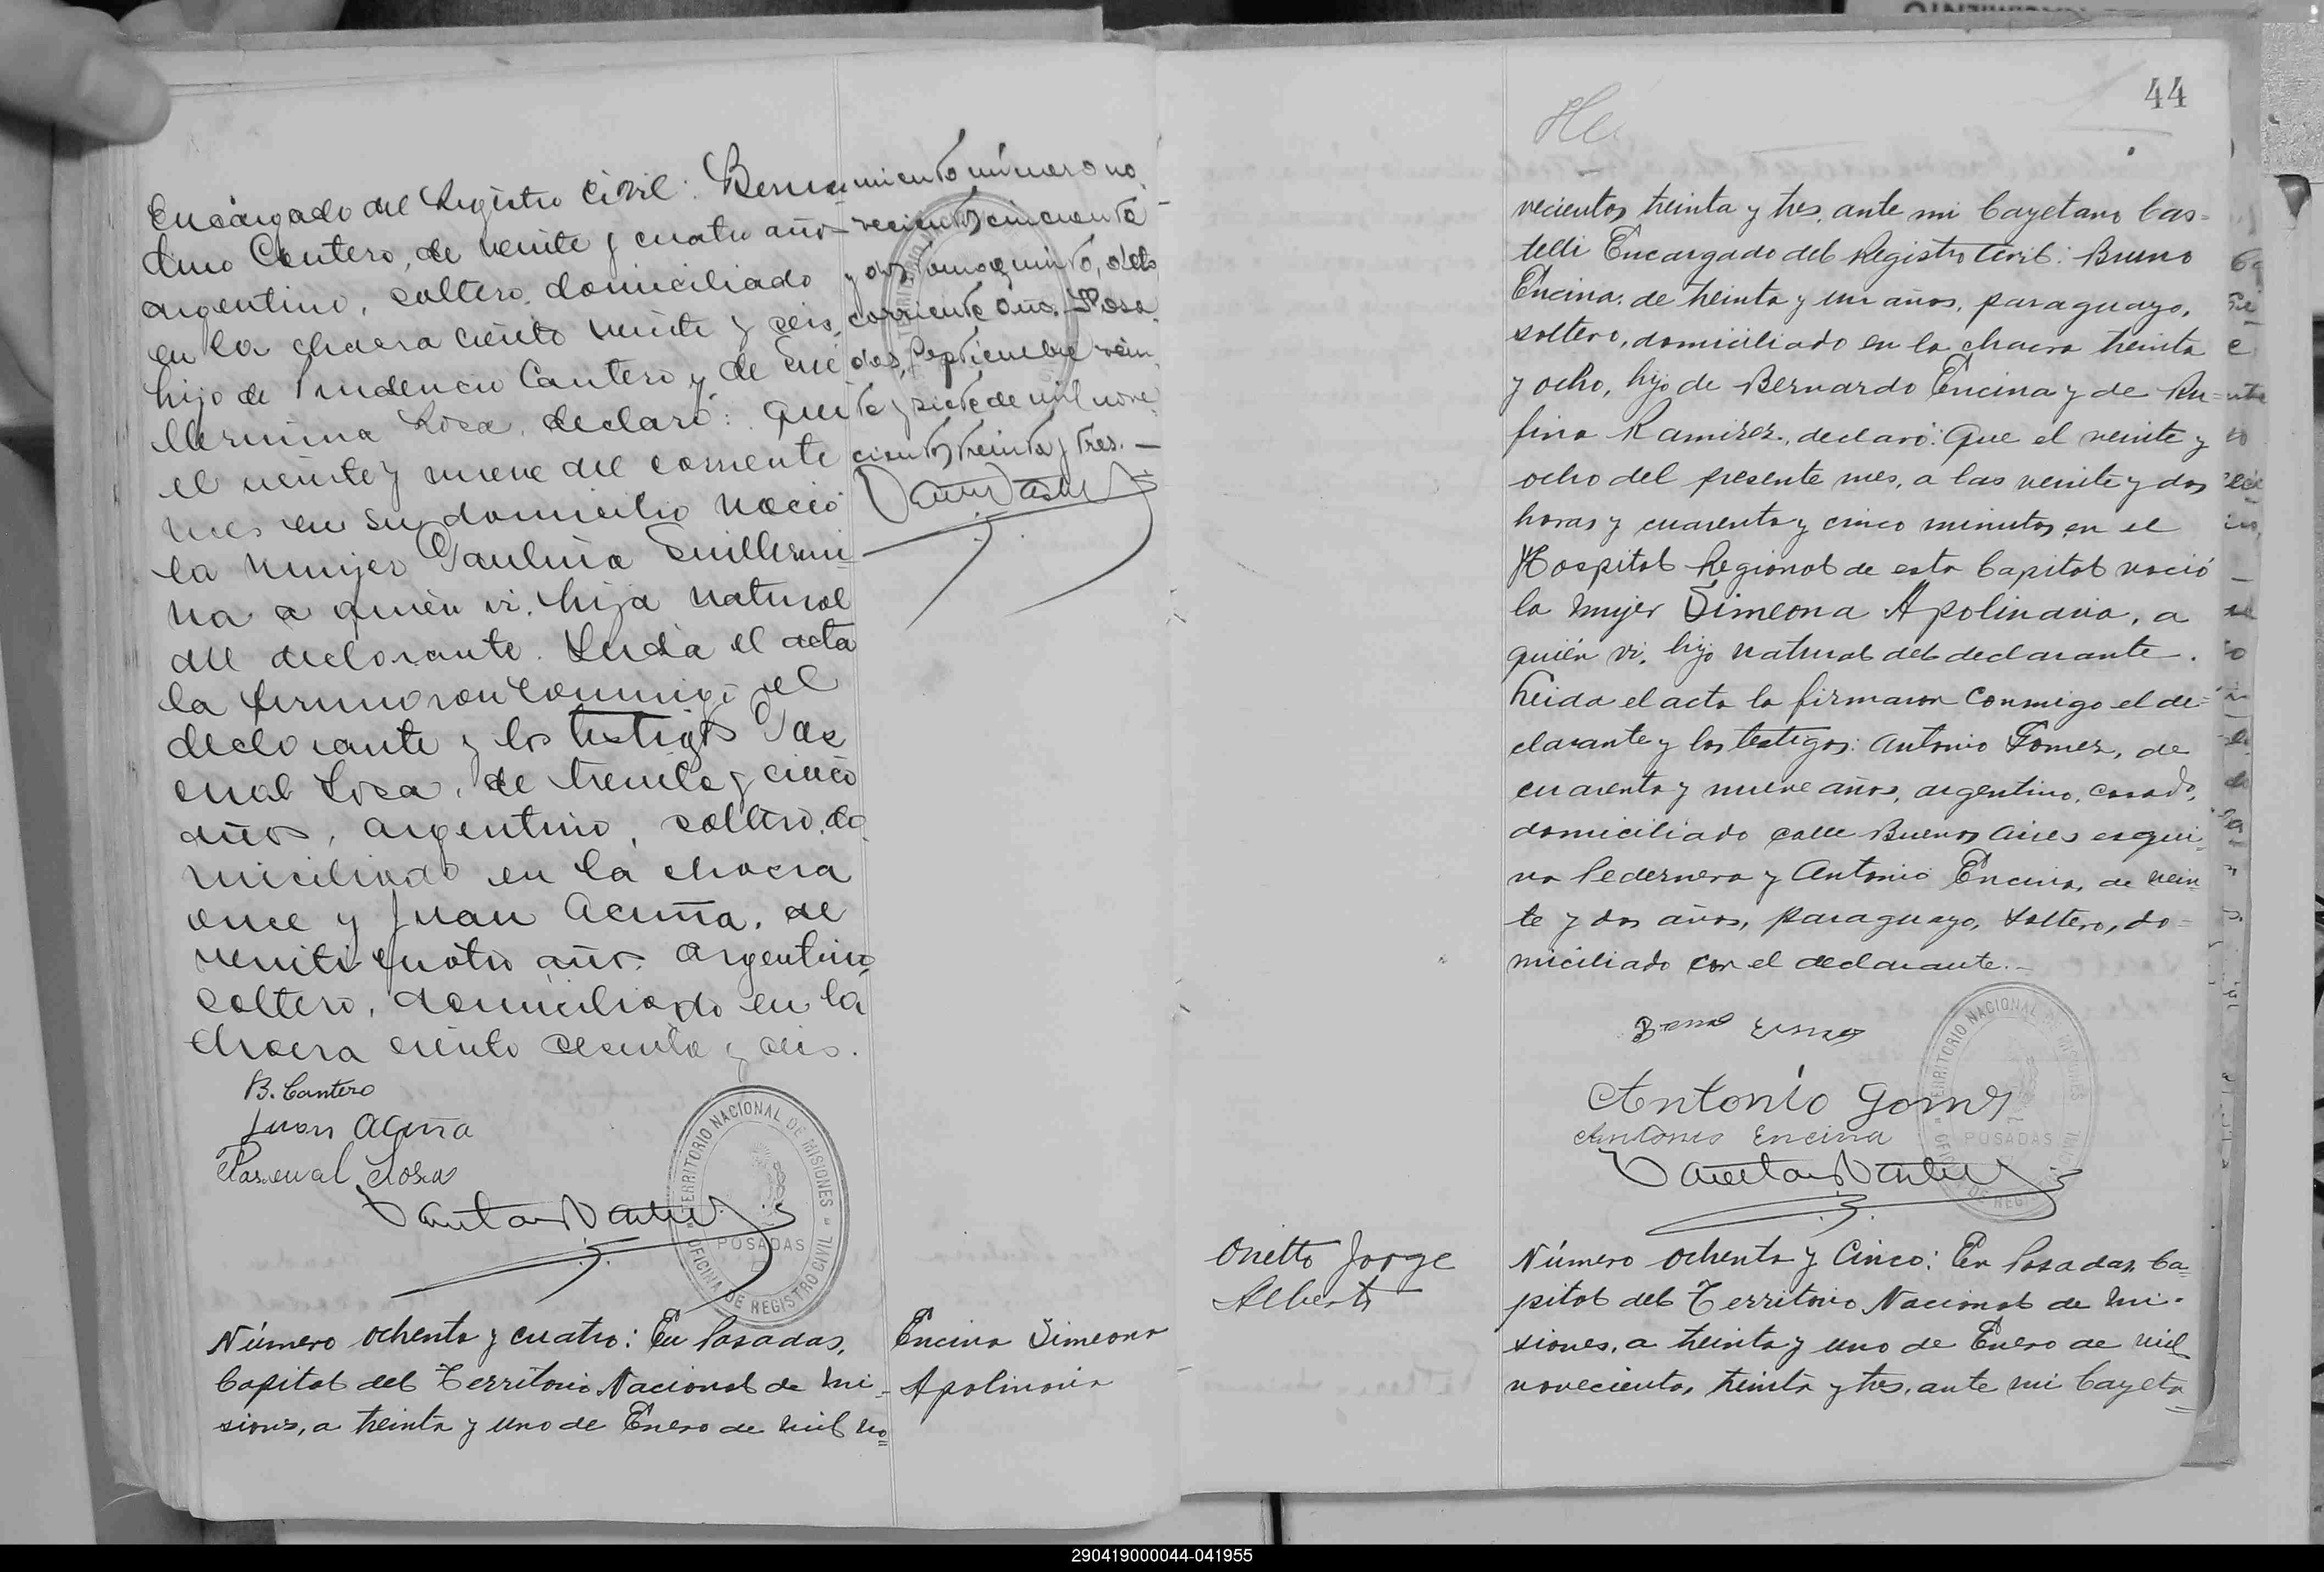 Encargado del Registro Civil: Bernar
dino Cantero, de veinte y cuatro años
argentino, soltero, domiciliado
en la chacra ciento veinte y seis,
hijo de Prudencio Cantero y de Gui
llermina Sosa, declaró: Que
el veinte y nueve del corriente
mes en su domicilio nació
la mujer Paulina Guillermi
na a quién vi, hija natural
del declarante. Leida el acta
la firmaron conmigo el
declarante y los testigos Pas
cual Sosa, de treinta y cinco
años, argentino, soltero, do
miciliado en la chacra
once y Juan Acuña, de
veinti cuatro años, argentino
soltero, domiciliado en la
chacra ciento sesenta y seis.
B. Cantero
Juan Acuña
Pascual Sosa
TERRITORIO NACIONAL DE MISIONES
POSADAS
OFICINA DE REGISTRO CIVIL
Número ochenta y cuatro: En Posadas,
Capital del Territorio Nacional de Mi-
siones, a treinta y uno de Enero de mil no=
miento número no
vecientos cincuenta
y dos tomo quinto, del
corriente año. Posa
das, Septiembre vein
te y siete de mil nove
cientos treinta y tres. —
Encina Simeona
Apolinaria
44
vecientos treinta y tres, ante mi Cayetano Cas=
telli Encargado del Registro Civil: Bruno
Encina, de treinta y un años, paraguayo,
soltero, domiciliado en la chacra treinta
y ocho, hijo de Bernardo Encina y de Ru=
fina Ramirez, declaró: Que el veinte y
ocho del presente mes, a las veinte y dos
horas y cuarenta y cinco minutos en el
Hospital Regional de esta Capital nació
la mujer Simeona Apolinaria, a
quién vi, hijo natural del declarante.
Leida el acta la firmaron conmigo el de=
clarante y los testigos: Antonio Gomez, de
cuarenta y nueve años, argentino, casado,
domiciliado calle Buenos Aires esqui-
na Pedernera y Antonio Encina, de vein
te y dos años, paraguayo, soltero, do=
miciliado con el declarante.-
Antonio Gomez
Antonio Encina
TERRITORIO NACIONAL DE MISIONES
POSADAS
OFICINA DE REGISTRO CIVIL
Onetto Jorge
Alberto
Número ochenta y cinco: En Posadas, Ca=
pital del Territorio Nacional de Mi-
siones, a treinta y uno de Enero de mil
novecientos treinta y tres, ante mi Cayeta=
290419000044-041955